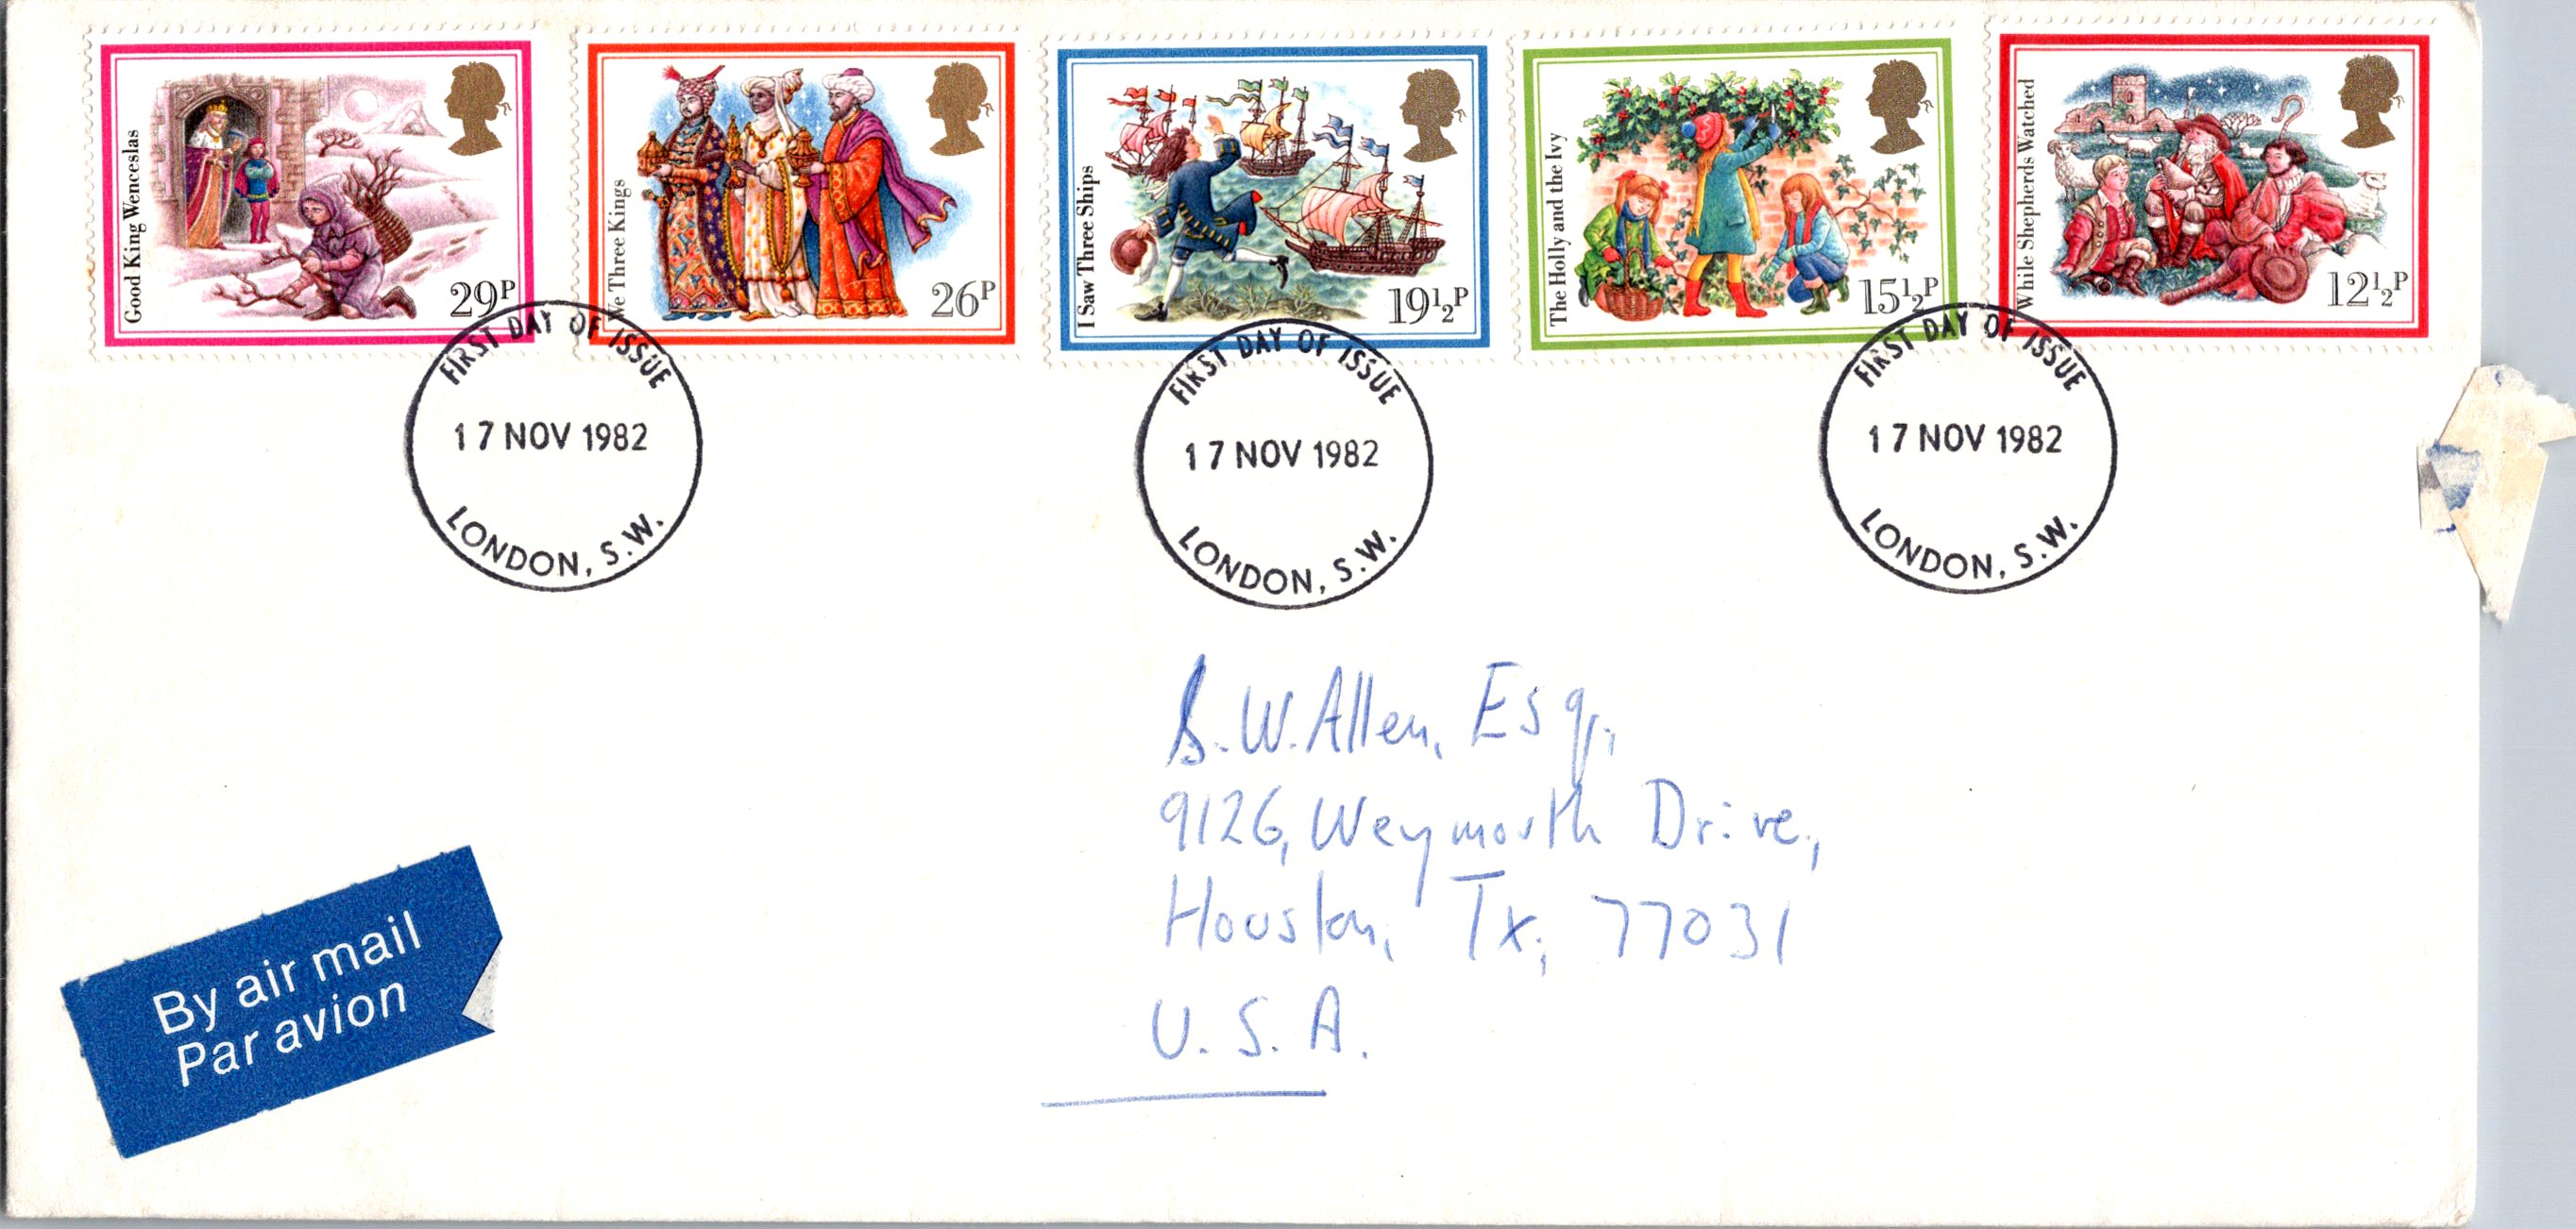 Good King Wenceslas
29P
We Three Kings
26P
I Saw Three Ships
19½P
The Holly and the Ivy
15½P
While Shepherds Watched
12½P
FIRST DAY OF ISSUE
17 NOV 1982
LONDON, S.W.
FIRST DAY OF ISSUE
17 NOV 1982
LONDON, S.W.
FIRST DAY OF ISSUE
17 NOV 1982
LONDON, S.W.
S. W. Allen, Esq.,
9126, Weymouth Drive,
Houston, Tx, 77031
U. S. A.
By air mail
Par avion